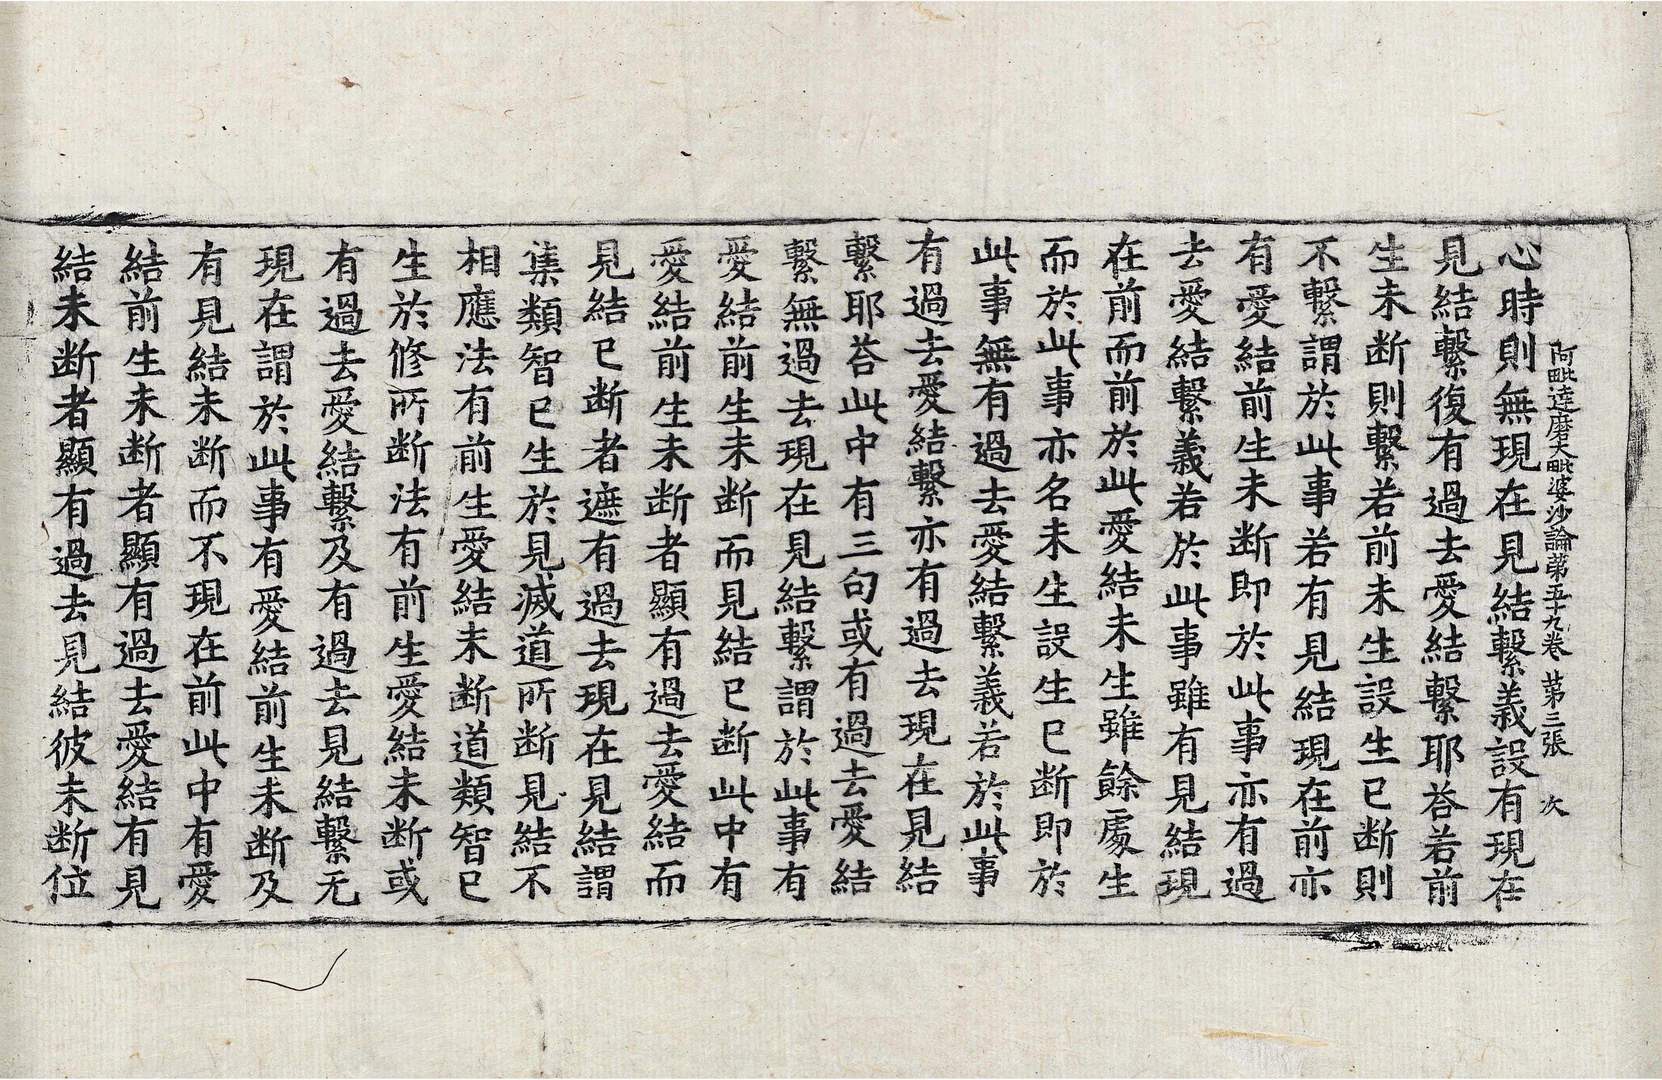 阿毗達磨大毗婆沙論第五十九卷 第三張 次
心時則無現在見結繫義設有現在
見結繫復有過去愛結繫耶荅若前
生未断則繫若前未生設生已断則
不繫謂於此事若有見結現在前亦
有愛結前生未断即於此事亦有過
去愛結繫義若於此事雖有見結現
在前而前於此愛結未生雖餘處生
而於此事亦名未生設生已断即於
此事無有過去愛結繫義若於此事
有過去愛結繫亦有過去現在見結
繫耶荅此中有三句或有過去愛結
繫無過去現在見結繫謂於此事有
愛結前生未断而見結已断此中有
愛結前生未断者顯有過去愛結而
見結已断者遮有過去現在見結謂
集類智已生於見滅道所断見結不
相應法有前生愛結未断道類智已
生於修所断法有前生愛結未断或
有過去愛結繫及有過去見結繫无
現在謂於此事有愛結前生未断及
有見結未断而不現在前此中有愛
結前生未断者顯有過去愛結有見
結未断者顯有過去見結彼未断位